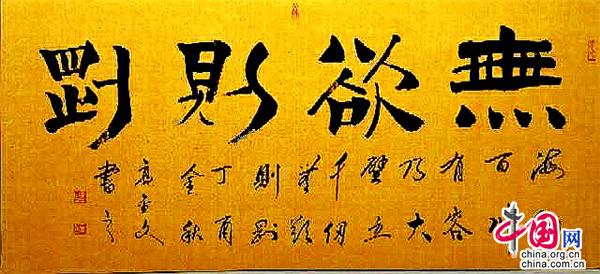 無欲則剛
海
百川
有容
乃大
壁立
千仞
無欲
則剛
丁酉
金秋
書
中国网
china.org.cn
china.com.cn